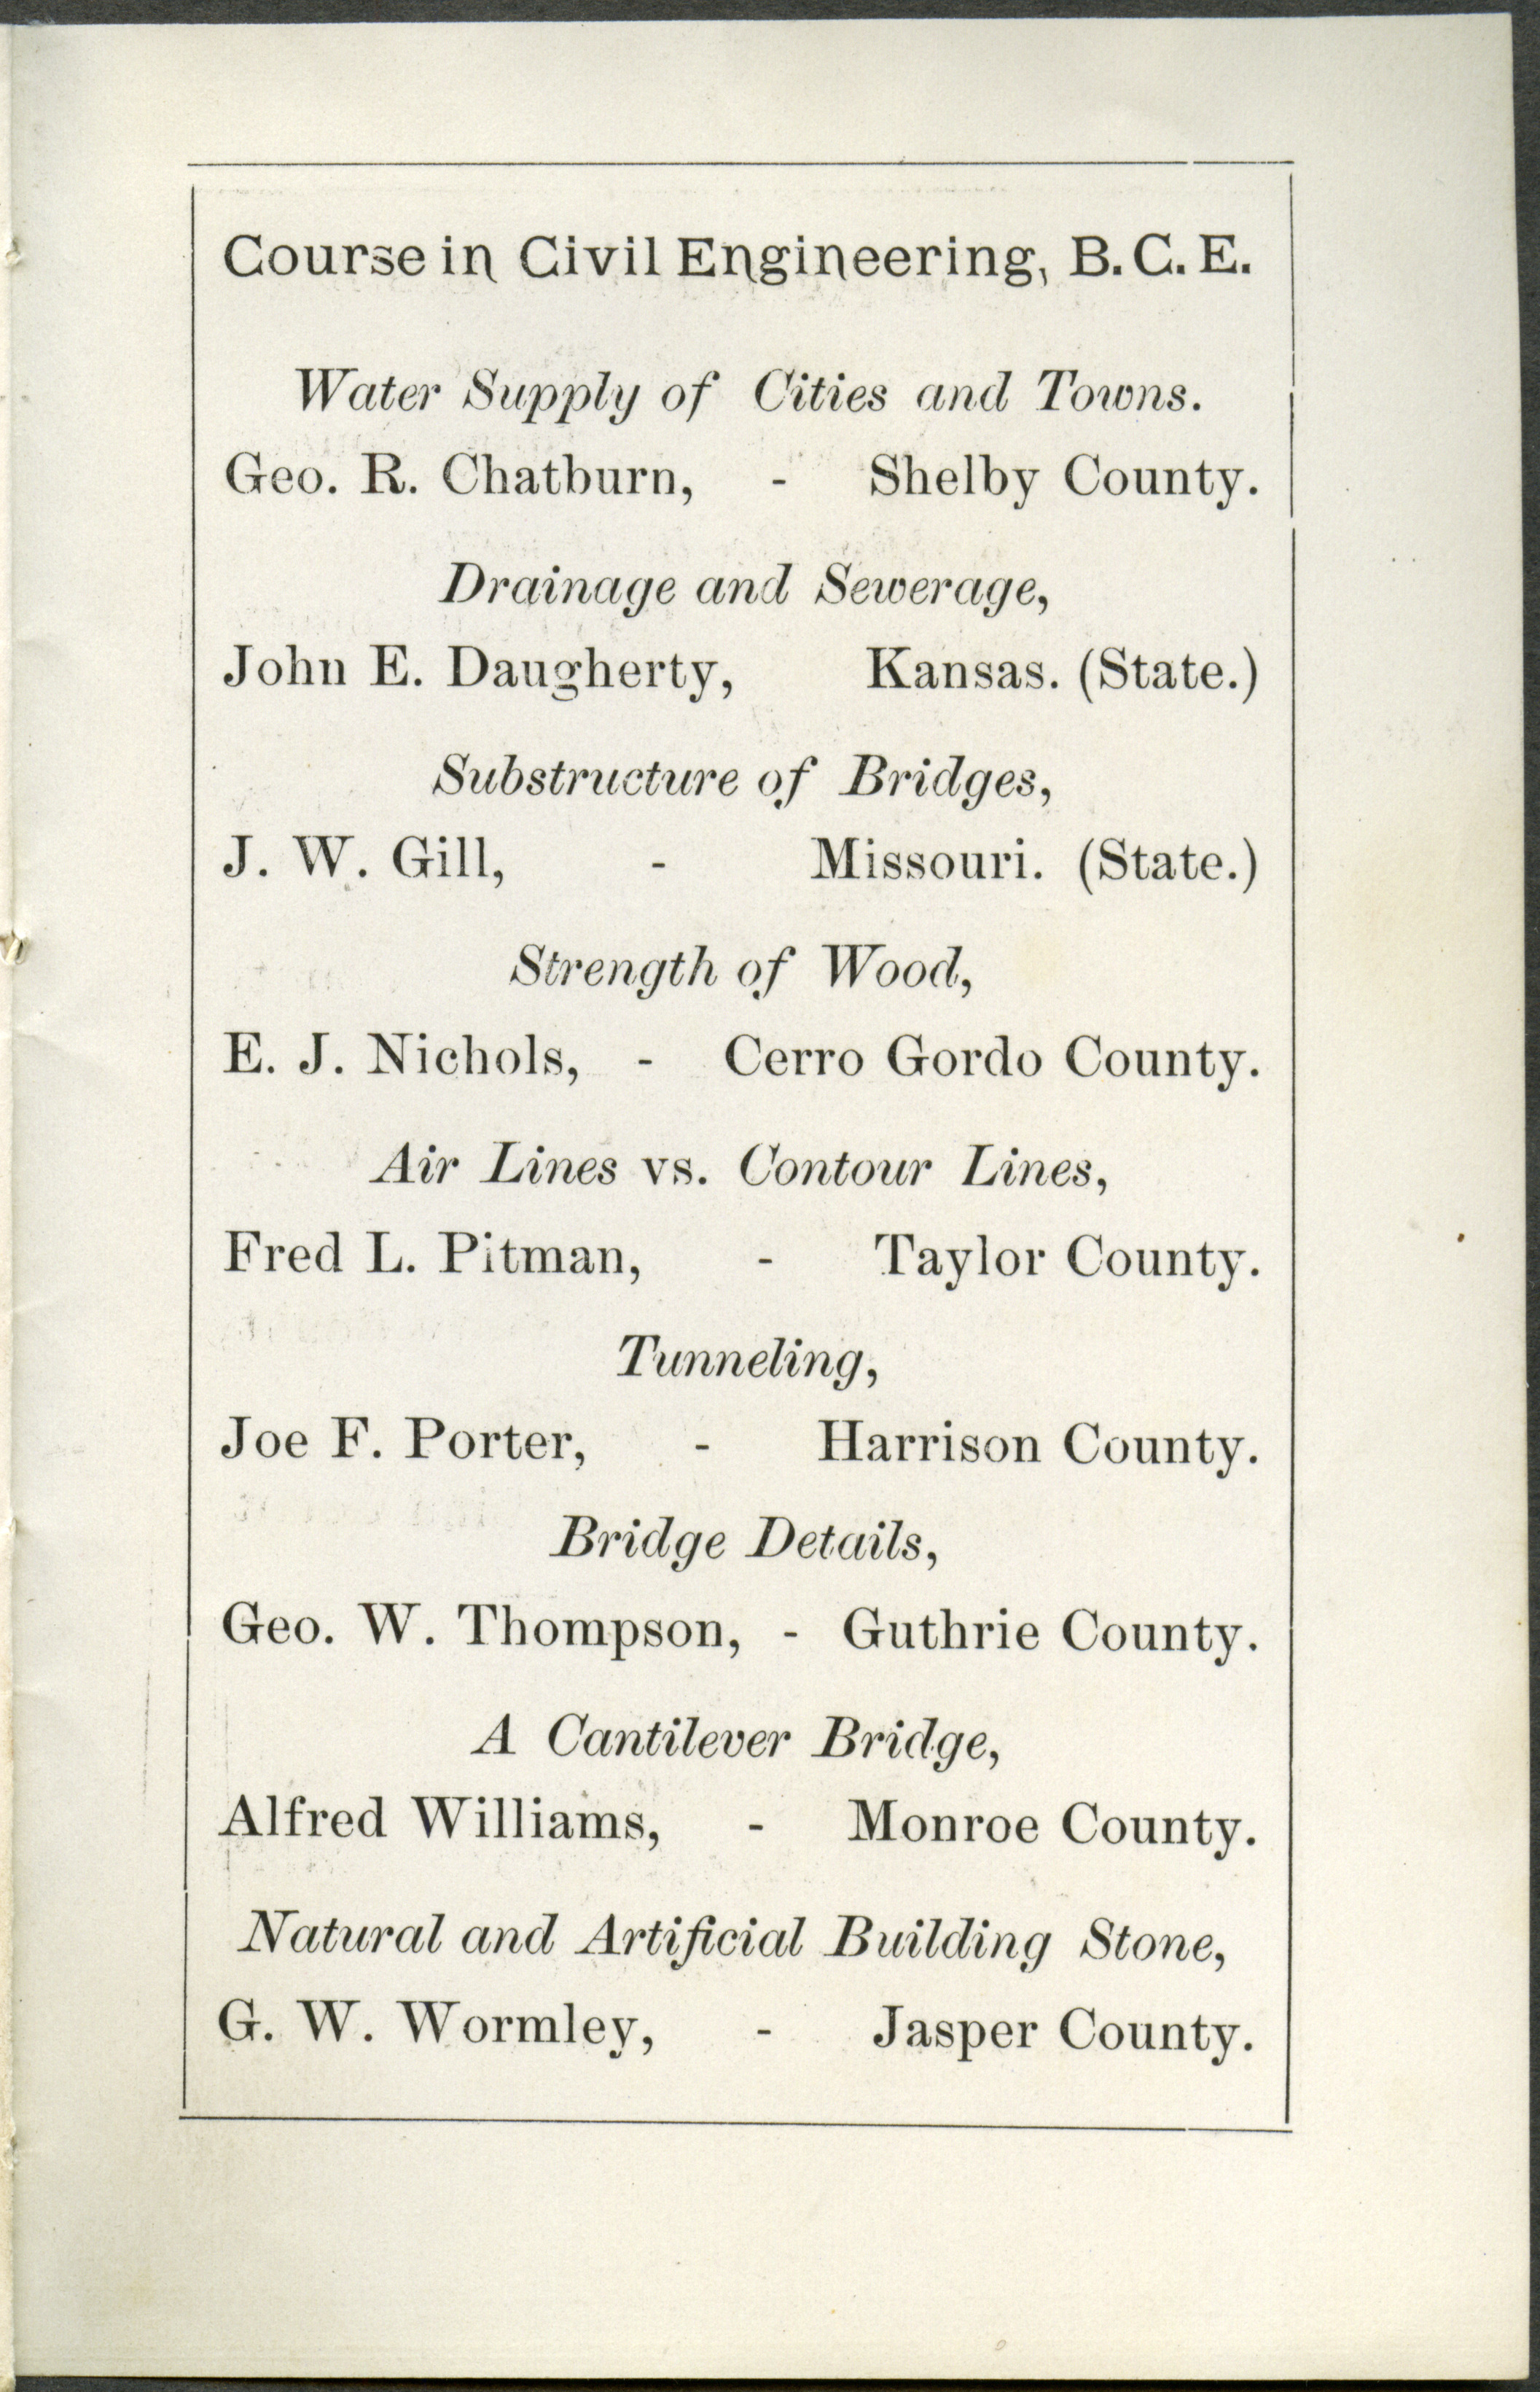 Course in Civil Engineering, B. C. E.
Water Supply of Cities and Towns.
Geo. R. Chatburn, - Shelby County.
Drainage and Sewerage,
John E. Daugherty, Kansas. (State.)
Substructure of Bridges,
J. W. Gill, - Missouri. (State.)
Strength of Wood,
E. J. Nichols, - Cerro Gordo County.
Air Lines vs. Contour Lines,
Fred L. Pitman, - Taylor County.
Tunneling,
Joe F. Porter, - Harrison County.
Bridge Details,
Geo. W. Thompson, - Guthrie County.
A Cantilever Bridge,
Alfred Williams, - Monroe County.
Natural and Artificial Building Stone,
G. W. Wormley, - Jasper County.